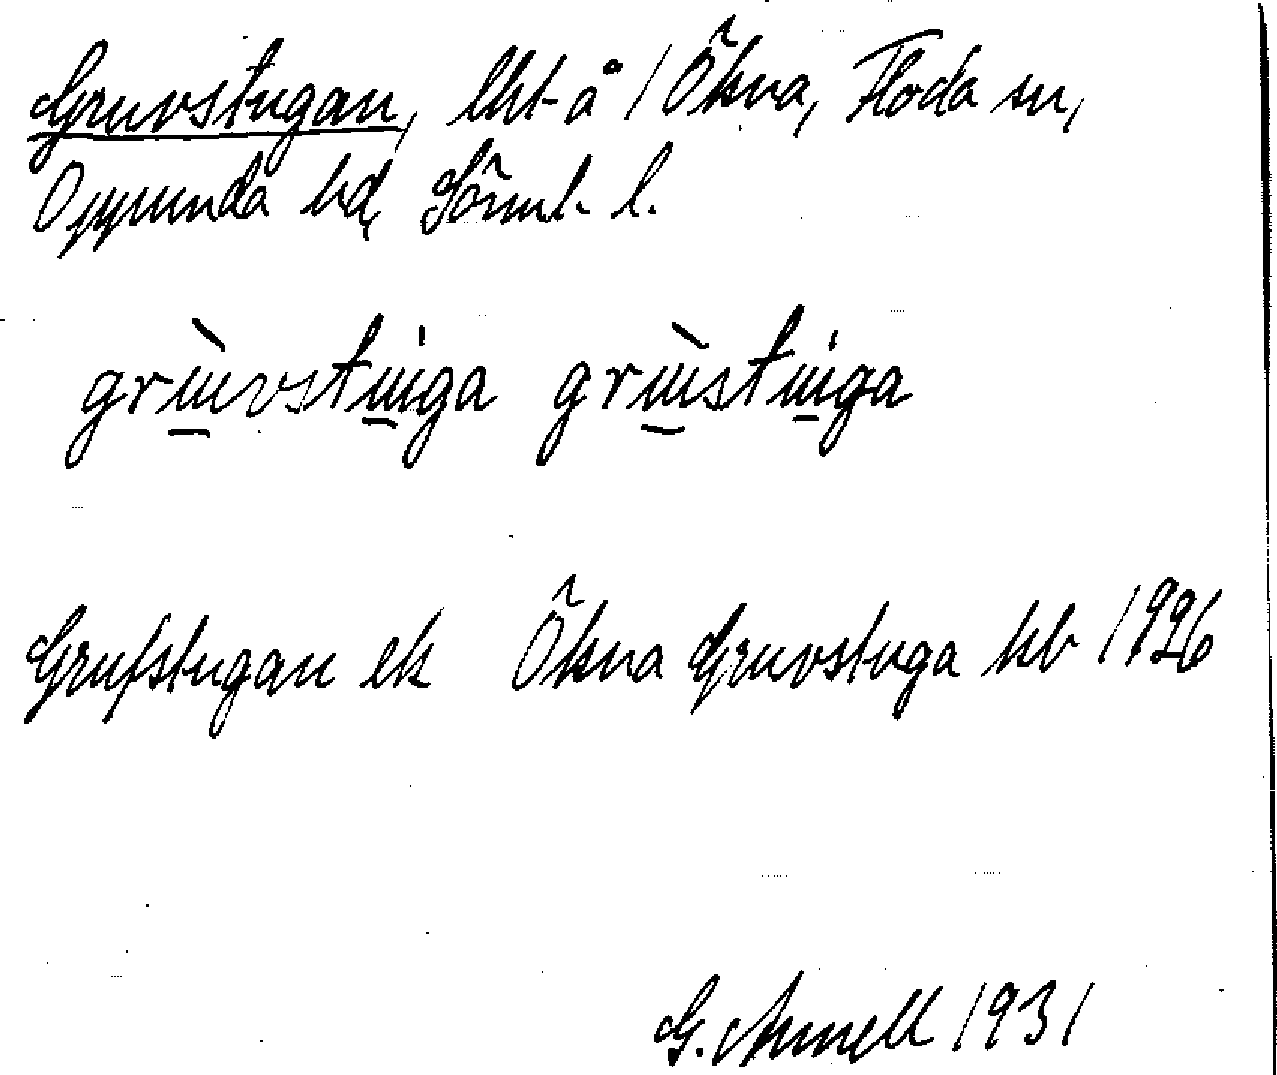 Gruvstugan, lht å / Ökna, Floda sn,
Oppunda hd, Sörml. l.
grùvstuga grùstuga
Grufstugan ek Ökna Gruvstuga kb 1926
G. Annell 1931